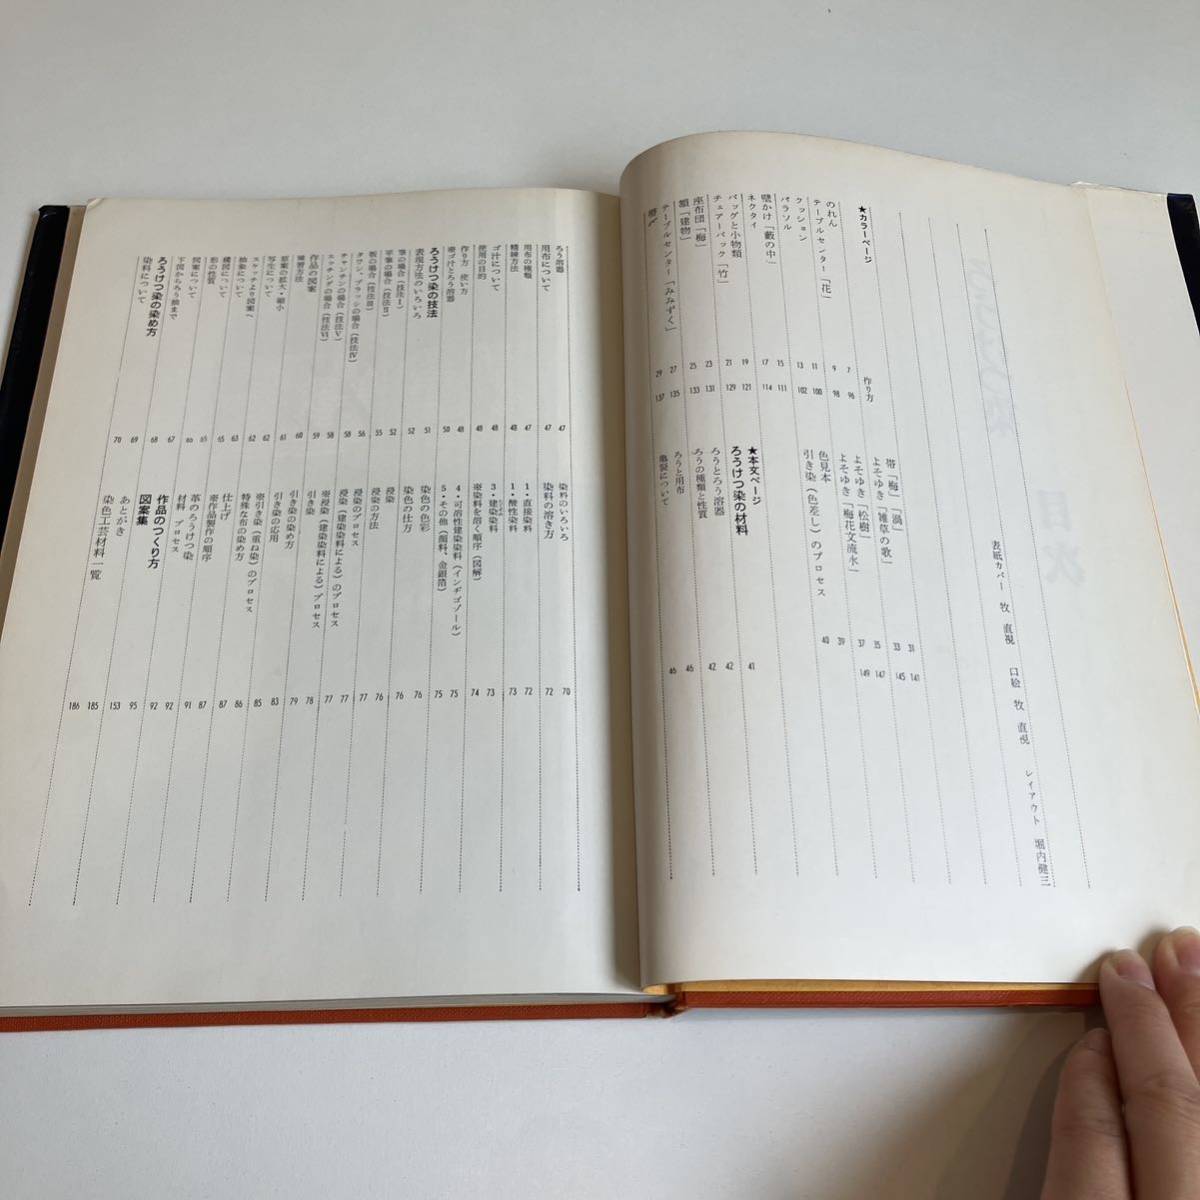 表紙カバー 牧 直視 口絵 牧 直視 レイアウト 堀内健三
★カラーページ 作り方
のれん 7 96
テーブルセンター「花」 9 98
クッション 11 100
パラソル 13 102
壁かけ「藪の中」 15 111
ネクタイ 17 114
バッグと小物類 19 121
チェアーバック「竹」 21 129
座布団「梅」 23 131
額「建物」 25 133
テーブルセンター「みみずく」 27 135
29 137
帯「梅」「渦」 31 141
よそゆき「雑草の歌」 33 145
よそゆき「松樹」 35 147
よそゆき「梅花文流水」 37 149
色見本 39
引き染(色差し)のプロセス 40
★本文ページ
ろうけつ染の材料 41
ろうとろう溶器 42
ろうの種類と性質 42
ろうと用布 46
亀裂について 46
ろう溶器 47
用布について 47
用布の種類 47
精練方法 48
ゴ汁について 48
使用の目的 48
作り方 使い方 48
ゴ汁とろう溶器 50
ろうけつ染の技法 51
表現方法のいろいろ 52
筆の場合(技法Ⅰ) 52
平筆の場合(技法Ⅱ) 55
板の場合(技法Ⅲ) 56
タワシ、ブラッシの場合(技法Ⅳ) 58
チャンチンの場合(技法Ⅴ) 58
エッチングの場合(技法Ⅵ) 59
作品の図案 60
方法 61
草案の拡大・縮小 62
写生について 62
スケッチより図案へ 63
抽象について 65
構図について 65
形の性質 66
図案について 67
下図からろう抽まで 68
ろうけつ染の染め方 69
染料について 70
染料のいろいろ 70
染料の溶き方 72
1・直接染料 72
1・酸性染料 73
3・建染染料 73
染料を溶く順序(図解) 74
4・可溶性建染染料(インヂゴゾール) 75
5・その他(顔料、金銀箔) 75
染色の色彩 76
染色の仕方 76
浸染 76
浸染の方法 77
浸染のプロセス 77
浸染(建染染料による)のプロセス 77
浸染(建染染料による)プロセス 78
引き染 79
引き染の染め方 79
引き染の応用 83
引き染(重ね染)のプロセス 85
特殊な布の染め方 86
仕上げ 87
作品製作の順序 87
革のろうけつ染 91
材料 プロセス 92
作品のつくり方 92
図案集 95
あとがき 153
染色工芸材料一覧 185
186